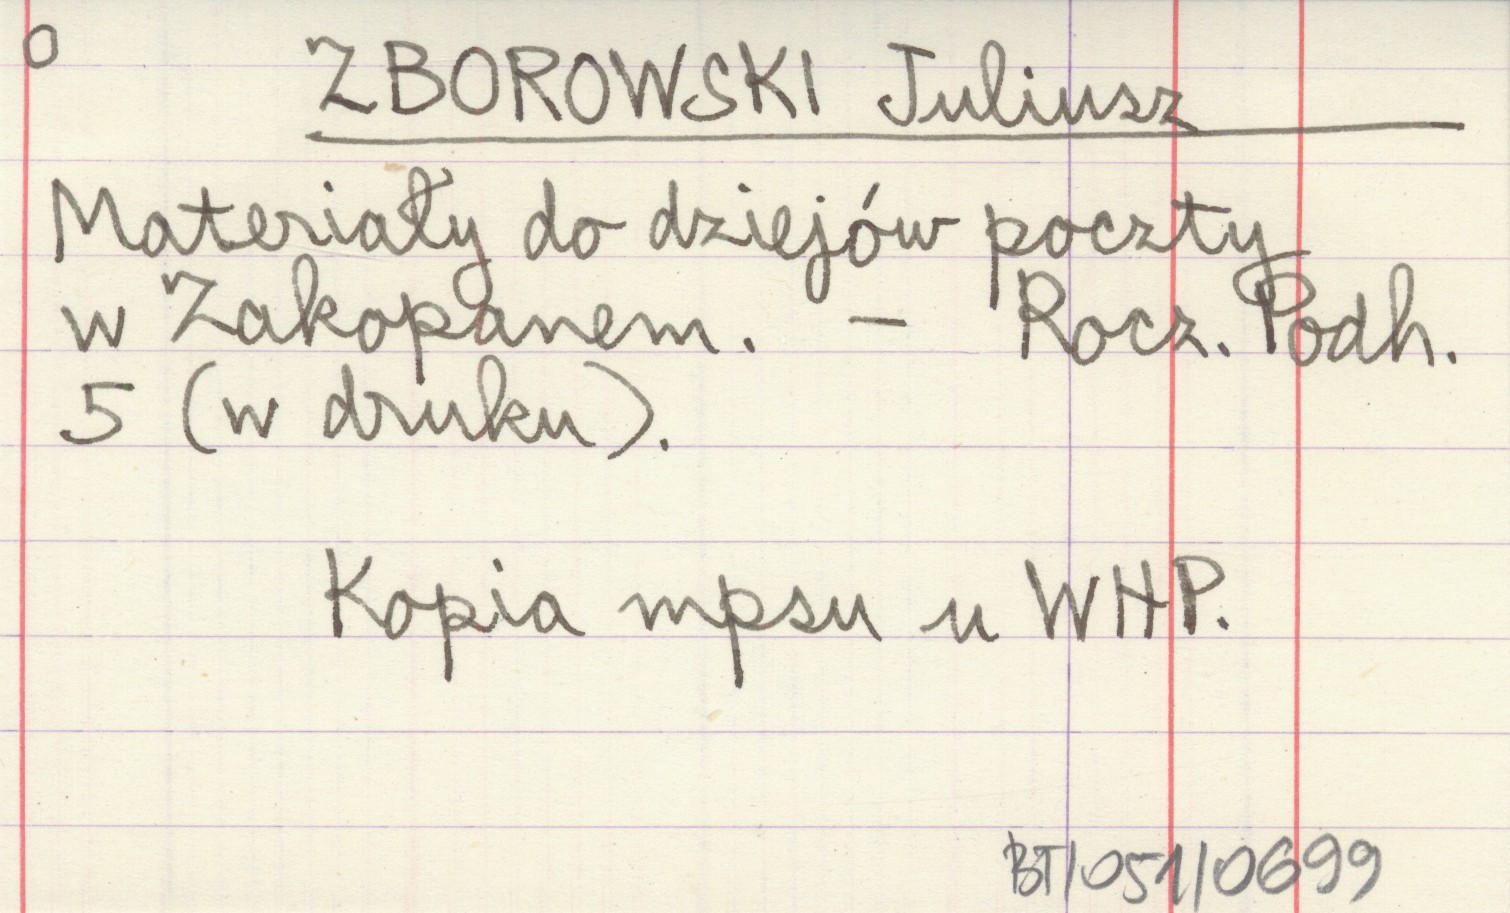 O
ZBOROWSKI Juliusz
Materiały do dziejów poczty
w Zakopanem. – Rocz. Podh.
5 (w druku).
Kopia mpsu u WHP.
BT/051/0699